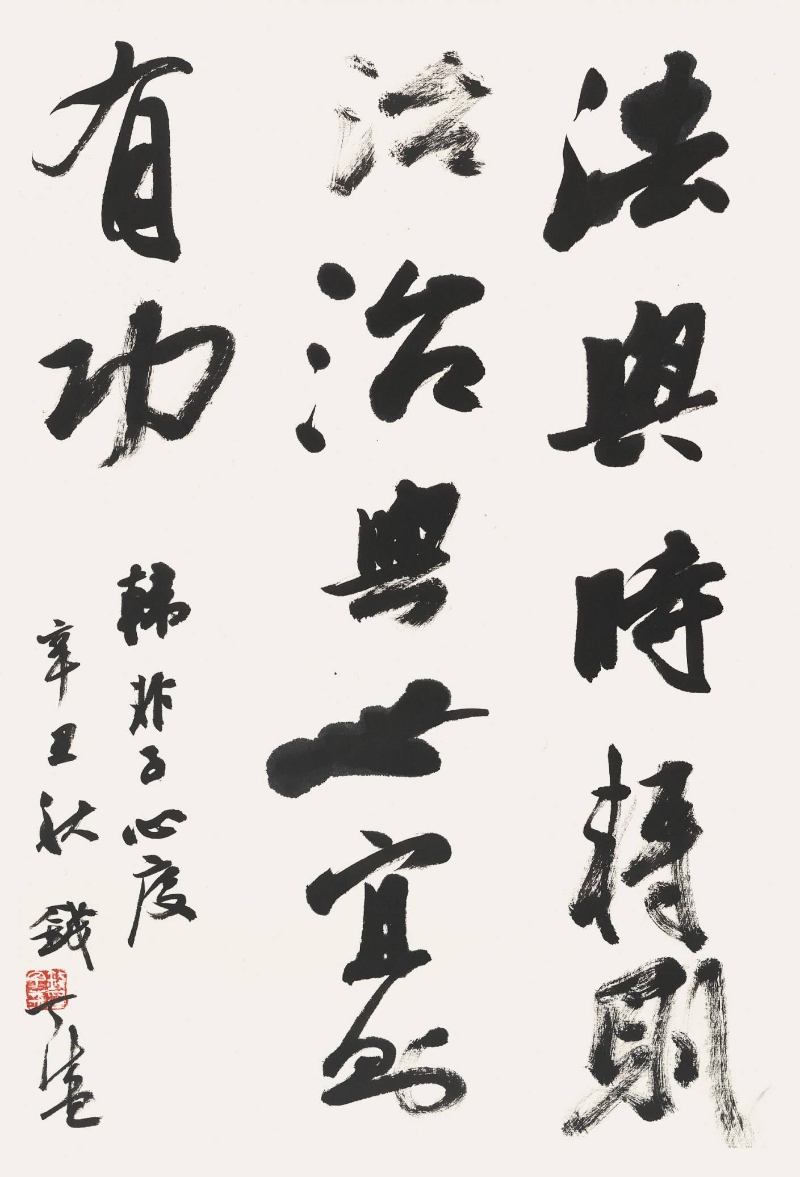 法與時轉則
治治與世宜則
有功
韓非子心度
辛丑秋 錢